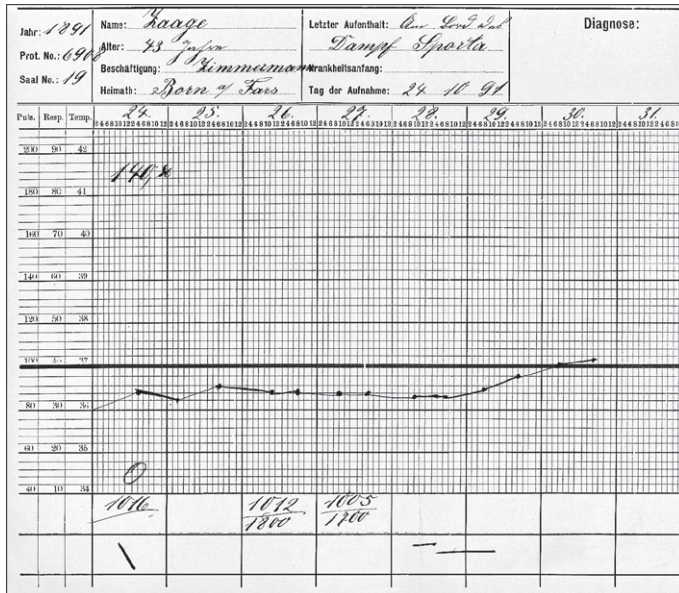 Jahr: 1891
Prot. No.: 6908
Saal No.: 19
Name: Zaage
Alter: 43 Jahre
Beschäftigung: Zimmermann
Heimath: Born a/ Fars
Letzter Aufenthalt: Am Bord des
Dampf Sporta
Krankheitsanfang:
Tag der Aufnahme: 24 10 91
Diagnose:
Puls. Resp. Temp. 24. 25. 26. 27. 28. 29. 30. 31.
2 4 6 8 10 12 2 4 6 8 10 12 2 4 6 8 10 12 2 4 6 8 10 12 2 4 6 8 10 12 2 4 6 8 10 12 2 4 6 8 10 12 2 4 6 8 10 12 2 4 6 8 10 12 2 4 6 8 10 12 2 4 6 8 10 12 2 4 6 8 10 12 2 4 6 8 10 12 2 4 6 8 10 12 2 4 6 8 10 12 2 4 6 8 10 12
200 90 42
140,
180 80 41
160 70 40
140 60 39
120 50 38
100 40 37
80 30 36
60 20 35
40 10 34
1016 1012 1005
1800 1700